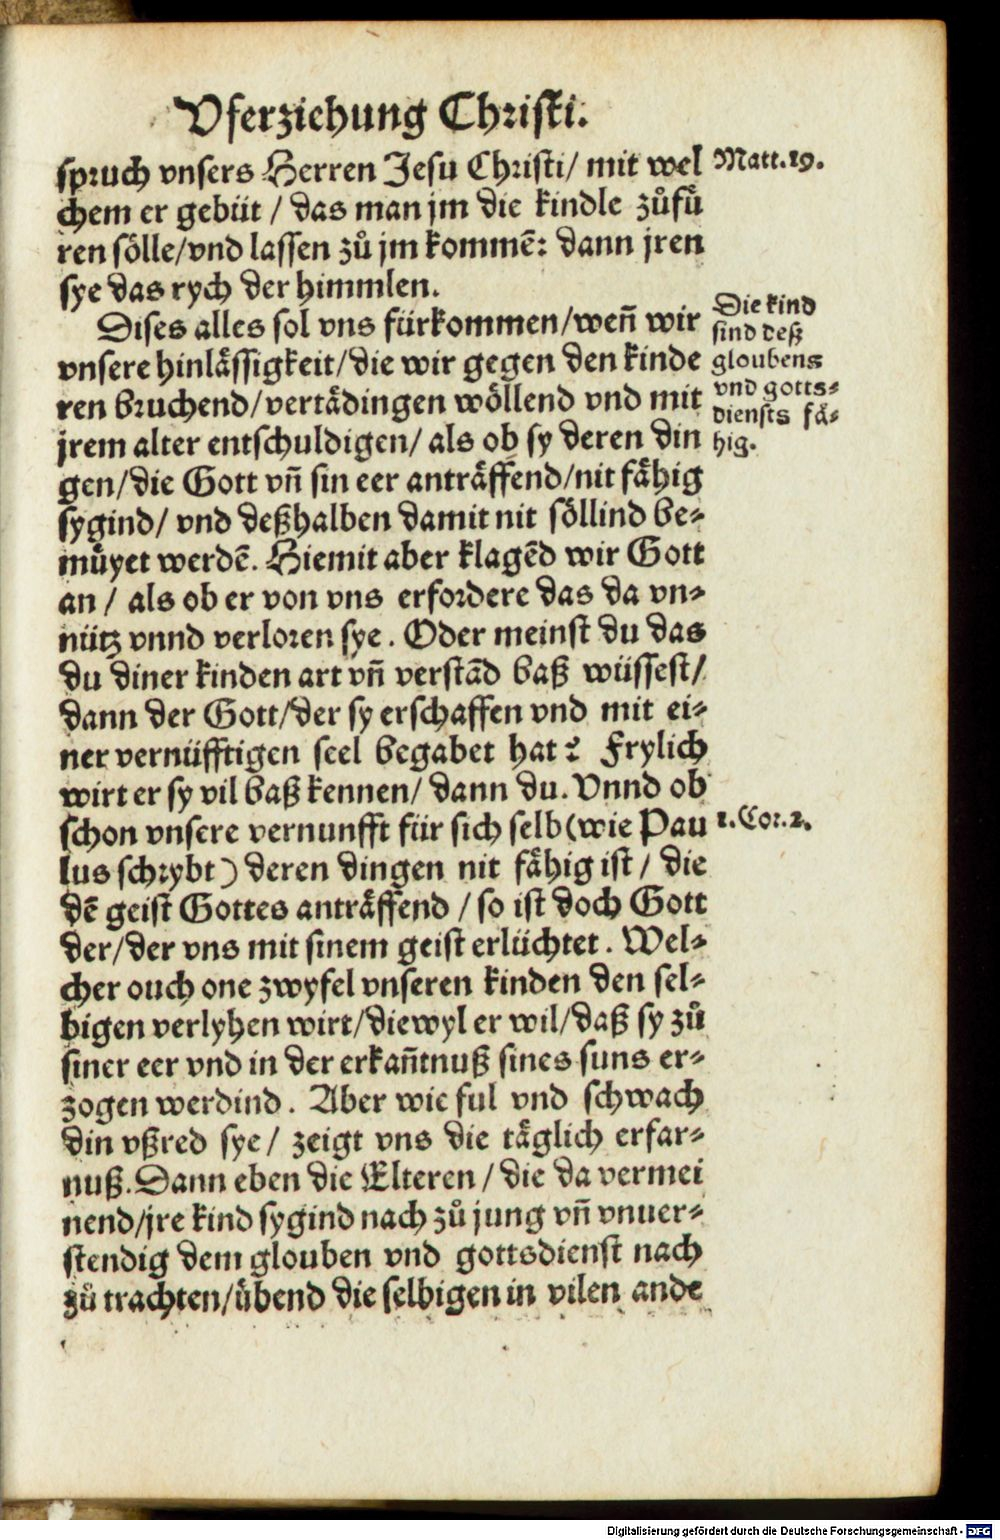 Vferziehung Christi.
spruch vnsers Herren Jesu Christi/ mit wel
chem er gebüt / das man jm die kindle zůfů
ren sölle/vnd lassen zů jm kommē: dann jren
sye das rych der himmlen.
Matt.19.
Dises alles sol vns fürkommen/weñ wir
vnsere hinlässigkeit/die wir gegen den kinde
ren bruchend/vertädingen wöllend vnd mit
jrem alter entschuldigen/ als ob sy deren din
gen/die Gott vñ sin eer anträffend/nit fähig
sygind/ vnd deßhalben damit nit söllind be⸗
müyet werdē. Hiemit aber klagēd wir Gott
an / als ob er von vns erfordere das da vn⸗
nütz vnnd verloren sye. Oder meinst du das
du diner kinden art vñ verstād baß wüssest/
dann der Gott/der sy erschaffen vnd mit ei⸗
ner vernüfftigen seel begabet hat? Frylich
wirt er sy vil baß kennen/ dann du. Vnnd ob
schon vnsere vernunfft für sich selb(wie Pau
lus schrybt) deren dingen nit fähig ist/ die
dē geist Gottes anträffend / so ist doch Gott
der/der vns mit sinem geist erlüchtet. Wel⸗
cher ouch one zwyfel vnseren kinden den sel⸗
bigen verlyhen wirt/diewyl er wil/daß sy zů
siner eer vnd in der erkañtnuß sines suns er⸗
zogen werdind. Aber wie ful vnd schwach
din vßred sye/ zeigt vns die täglich erfar⸗
nuß. Dann eben die Elteren / die da vermei
nend/jre kind sygind nach zů jung vñ vnuer⸗
stendig dem glouben vnd gottsdienst nach
zů trachten/übend die selbigen in vilen ande
Die kind
sind deß
gloubens
vnd gotts⸗
diensts fä⸗
hig.
1.Cor.2.
Digitalisierung gefördert durch die Deutsche Forschungsgemeinschaft - DFG